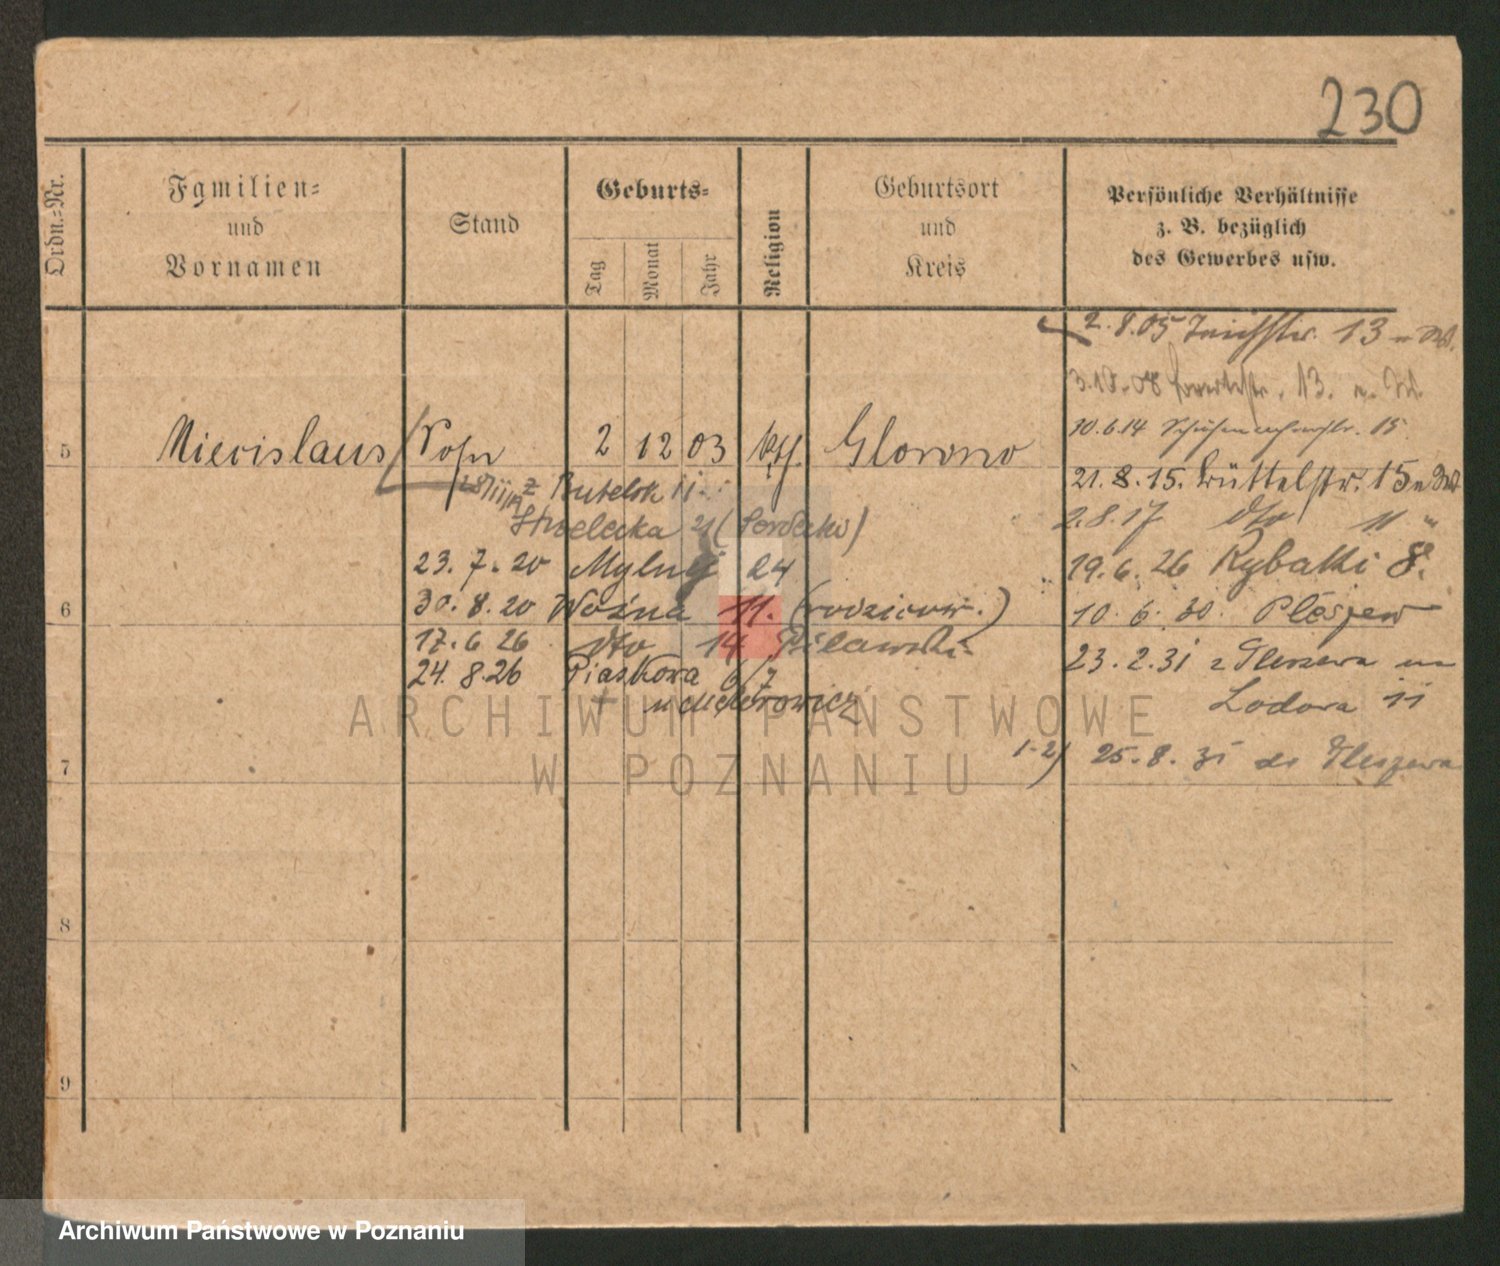 230
Ordn.=Nr.
Familien=
und
Vornamen
Stand
Geburts=
Tag
Monat
Jahr
Religion
Geburtsort
und
Kreis
Persönliche Verhältnisse
z. B. bezüglich
des Gewerbes usw.
2. 8. 05 13
3.10.08 13.
5 Miecislaus Sohn 2 12 03 kth. Glowno
30.6.14 15
21. 8. 15. Büttelstr. 15
z Butelsk 11.
Strzelecka 21
2.8.17 dto 11 "
23. 7. 20 Mylna 24
19. 6. 26 Rybaki 8.
6 30. 8. 20 Woźna 11. (rodziców.)
10. 6. 30. Pleszew
17. 6 26 dto 14 Pilawski
24. 8. 26 Piaskowa 6/7
23. 2. 31 z Pleszewa na
Lodowa 11
ARCHIWUM PAŃSTWOWE
W POZNANIU
7 1-2) 25. 8. 31 do Pleszewa
8
9
Archiwum Państwowe w Poznaniu